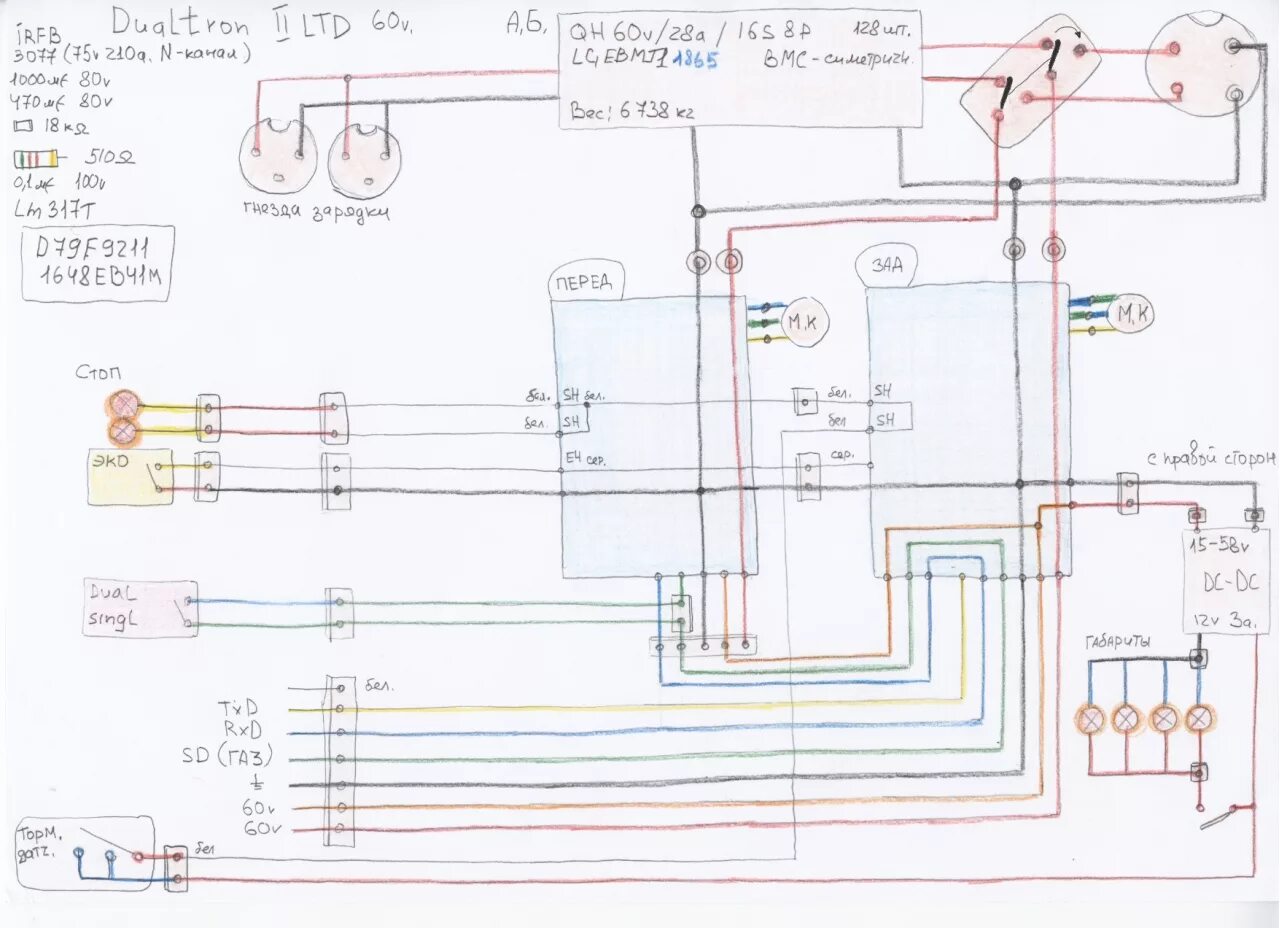 Dualtron II LTD 60v.
iRFB
3077 (75v 210a, N-канал)
1000мf 80v
470мf 80v
18кΩ
510Ω
0,1мf 100v
Lm317T
D79F9211
1648EB41M
А,Б.
QH 60v/28a / 16S 8P 128шт.
LG EBMJ1 1865 ВМС-симетричн.
Вес; 6738 кг
гнезда зарядки
ПЕРЕД
ЗАД
М,К
М,К
Стоп
бел. SH бел.
бел. SH
бел. SH
бел SH
ЭКО
E4 сер.
сер.
с правой сторон
15-58v
DC-DC
12v 3а.
DuaL
singL
габариты
бел.
TxD
RxD
SD (ГАЗ)
60v
60v
Торм.
датч.
бел